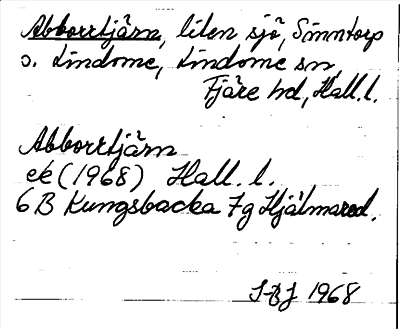 Abborrtjärn, liten sjö, Sinntorp
o. Lindome, Lindome sn,
Fjäre hd, Hall. l.
Abborrtjärn
ek (1968) Hall. l.
6 B Kungsbacka 7g Hjälmared.
S-BJ 1968